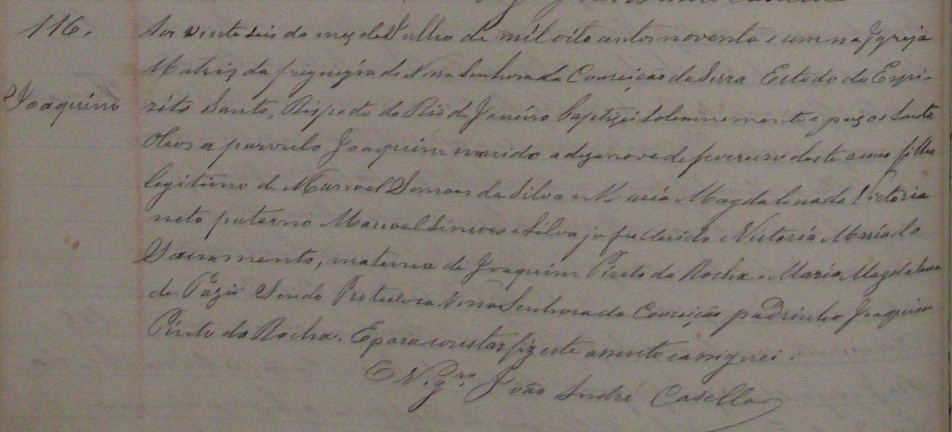 116.
Aos vinte seis do mez de Julho de mil oito centos noventa e um na Igreja
Joaquim
Matriz da freguezia de Nossa Senhora da Conceição da Serra Estado do Espi-
rito Santo, Bispado do Rio de Janeiro baptizei solemnemente e puz os Santos
Oleos a parvulo Joaquim nascido a dezenove de fevereiro deste anno filho
legitimo de Manoel Simoes da Silva e Maria Magdalena da Victoria
neto paterno Manoel Simoes e Silva ja fallecido e Victoria Maria do
Sacramento, materno de Joaquim Pinto da Rocha e Maria Magdalena
de Sendo Protectora Nossa Senhora da Conceição padrinho Joaquim
Pinto da Rocha. E para constar fiz este assento e assignei.
O Vigro João André Casella